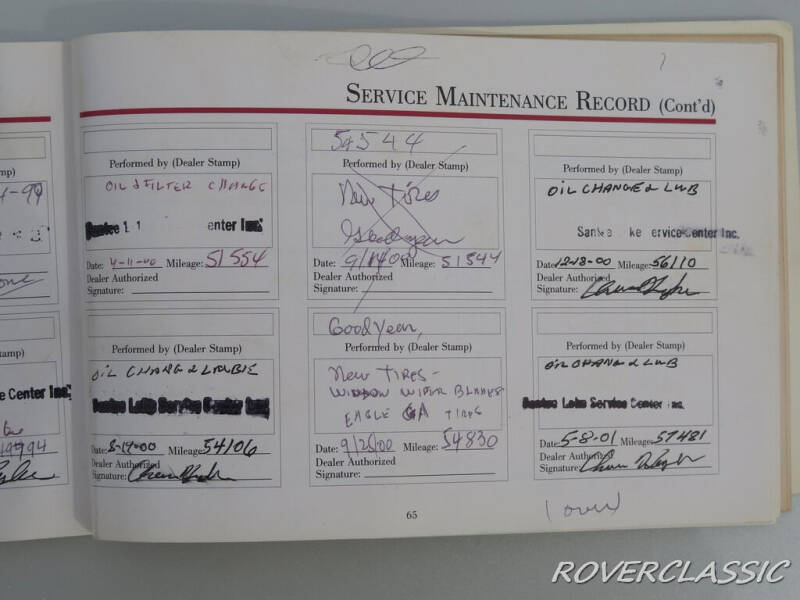 SERVICE MAINTENANCE RECORD (Cont'd)
Performed by (Dealer Stamp)
OIL & FILTER CHANGE
Santee enter Inc.
Date: 4-11-00 Mileage: 51554
Dealer Authorized
Signature:
54544
Performed by (Dealer Stamp)
New Tires
Goodyear
Date: Mileage: 51544
Dealer Authorized
Signature:
Performed by (Dealer Stamp)
OIL CHANGE & LUB
Santee ke ervice Center Inc.
Date: 12-18-00 Mileage: 56110
Dealer Authorized
Signature:
Performed by (Dealer Stamp)
OIL CHANG & LUBE
Santee Lake Service Center Inc
Date: 8-17-00 Mileage: 54106
Dealer Authorized
Signature:
Goodyear,
Performed by (Dealer Stamp)
New TIRES-
WINDOW WIPER BLADES
EAGLE GA TIRES
Date: 9/25/00 Mileage: 54830
Dealer Authorized
Signature:
Performed by (Dealer Stamp)
OIL CHANG & LUB
Santee Lake Service Center Inc.
Date: 5-8-01 Mileage: 57481
Dealer Authorized
Signature:
amp)
amp)
e Center Inc.
65
(over)
ROVERCLASSIC